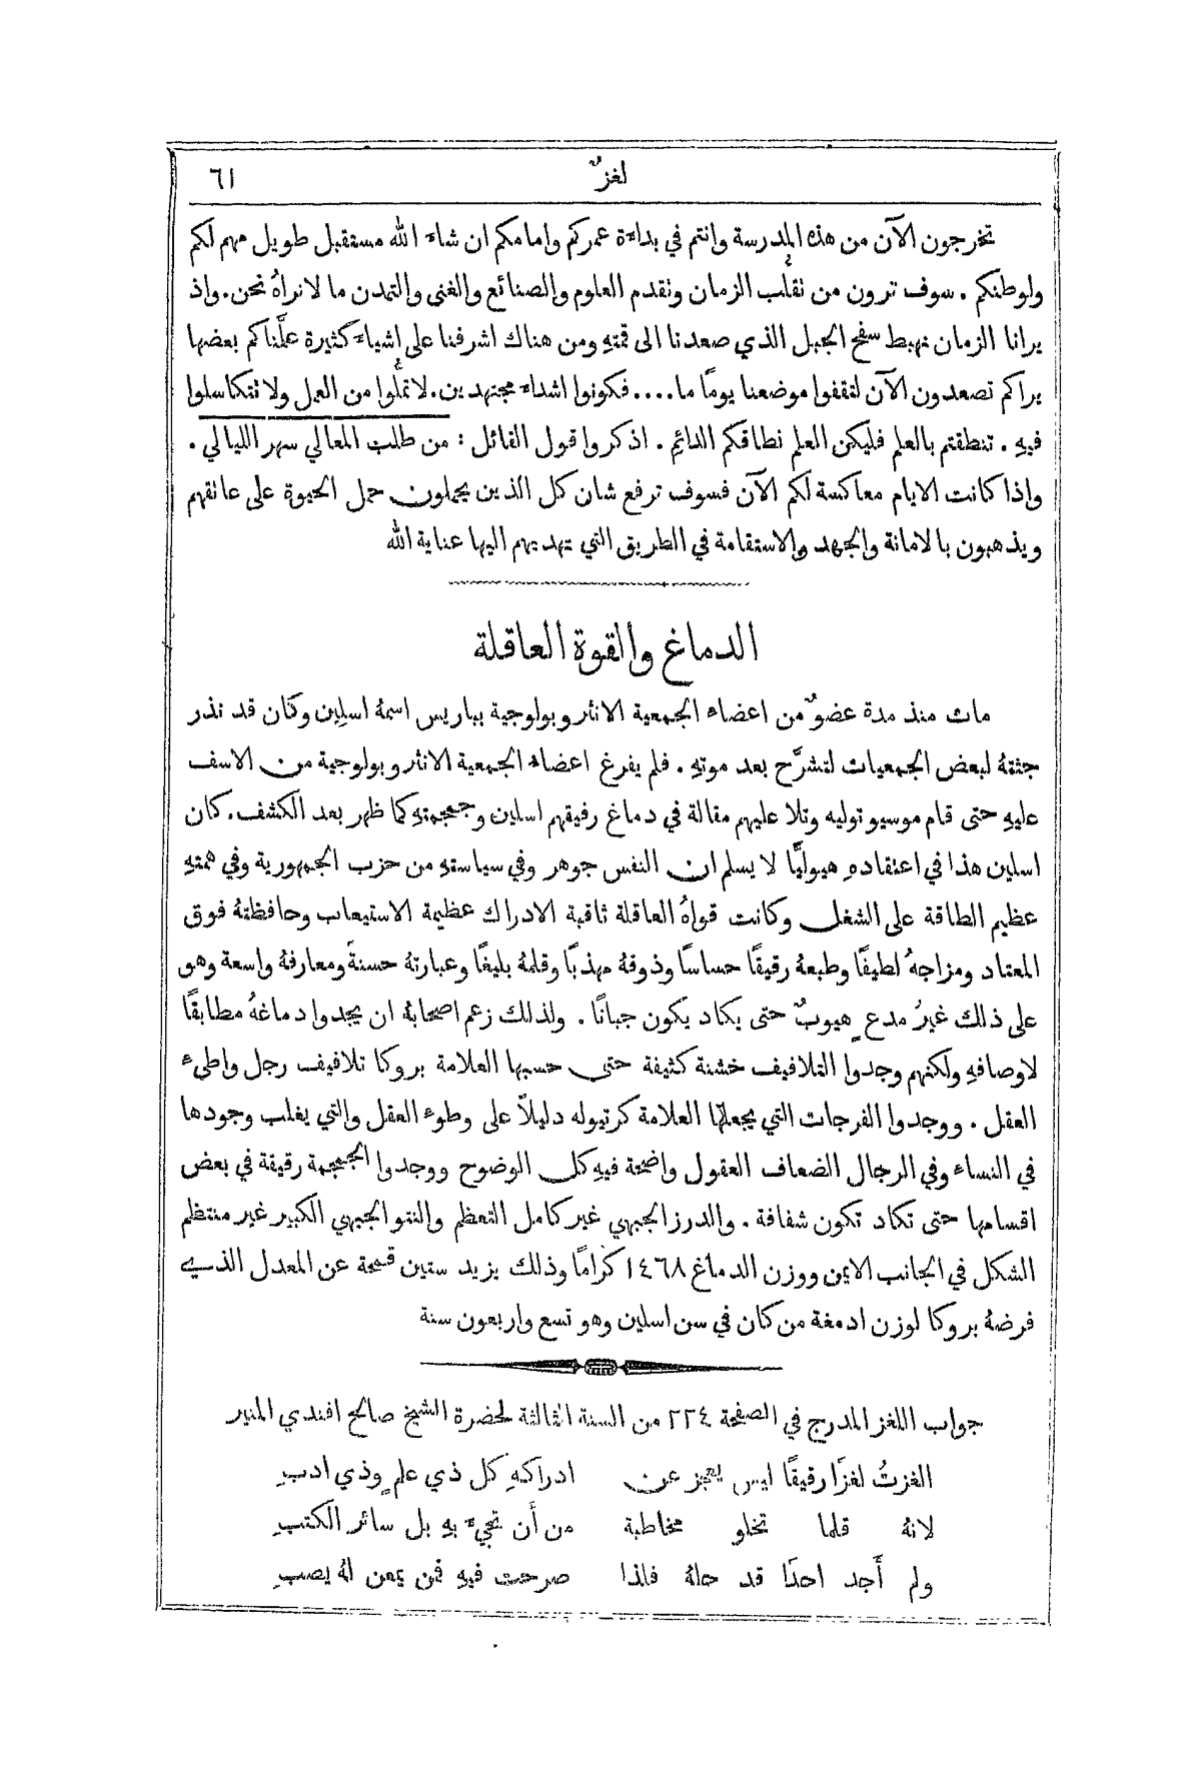 لغزٌ
٦١
تخرجون الآن من هذه المدرسة وانتم في بداءة عمركم وامامكم ان شاء الله مستقبل طويل مهم لكم
ولوطنكم . سوف ترون من تقلُّب الزمان وتقدم العلوم والصنائع والغنى والتمدن ما لا نراهُ نحن. واذ
يرانا الزمان نهبط سفح الجبل الذي صعدنا الى قمتهِ ومن هناك اشرفنا على اشياء كثيرة علَّمناكم بعضها
يراكم تصعدون الآن لتقفوا موضعنا يومًا ما.... فكونوا اشداء مجتهدين. لا تملُّوا من العمل ولا تتكاسلوا
فيهِ . تنطقتم بالعلم فليكن العلم نطاقكم الدائم . اذكروا قول القائل : من طلب المعالي سهر الليالي .
واذا كانت الايام معاكسة لكم الآن فسوف ترفع شان كل الذين يحملون حمل الحيوة على عاتقهم
ويذهبون بالامانة والجهد والاستقامة في الطريق التي تهديهم اليها عناية الله
الدماغ والقوة العاقلة
مات منذ مدة عضوٌ من اعضاء الجمعية الانثروبولوجية بباريس اسمهُ اسلين وكان قد نذر
جثتهُ لبعض الجمعيات لتشرَّح بعد موتهِ . فلم يفرغ اعضاء الجمعية الانثروبولوجية من الاسف
عليهِ حتى قام موسيو توليه وتلا عليهم مقالة في دماغ رفيقهم اسلين وجمجمتهِ كما ظهر بعد الكشف. كان
اسلين هذا في اعتقادهِ هيوليًّا لا يسلم ان النفس جوهر وفي سياستهِ من حزب الجمهورية وفي همتهِ
عظيم الطاقة على الشغل وكانت قواهُ العاقلة ثاقبة الادراك عظيمة الاستيعاب وحافظتهُ فوق
المعتاد ومزاجهُ لطيفًا وطبعهُ رقيقًا حساسًا وذوقهُ مهذبًا وقلمهُ بليغًا وعبارتهُ حسنةً ومعارفهُ واسعة وهو
على ذلك غيرُ مدعٍ هيوبٌ حتى يكاد يكون جبانًا . ولذلك زعم اصحابهُ ان يجدوا دماغهُ مطابقًا
لاوصافهِ ولكنهم وجدوا التلافيف خشنة كثيفة حتى حسبها العلامة بروكا تلافيف رجل واطىء
العقل . ووجدوا الفرجات التي يجعلها العلامة كرتيوله دليلاً على وطوء العقل والتي يغلب وجودها
في النساء وفي الرجال الضعاف العقول واضحة فيهِ كل الوضوح ووجدوا الجمجمة رقيقة في بعض
اقسامها حتى تكاد تكون شفافة . والدرز الجبهي غير كامل التعظم والنتو الجبهي الكبير غير منتظم
الشكل في الجانب الايمن ووزن الدماغ ١٤٦٨ كرامًا وذلك يزيد ستين قمحة عن المعدل الذي
فرضهُ بروكا لوزن ادمغة من كان في سن اسلين وهو تسع واربعون سنة
جواب اللغز المدرج في الصفحة ٢٢٤ من السنة الثالثة لحضرة الشيخ صالح افندي المنير
الغزتُ لغزًا رقيقًا ليس يعجز عن ادراكهِ كل ذي علمٍ وذي ادبِ
لانهُ قلما تخلو مخاطبة من أن تجيء بهِ بل سائر الكتبِ
ولم أجد احدًا قد حلهُ فلذا صرحت فيهِ فمن يمعن لهُ يصبِ